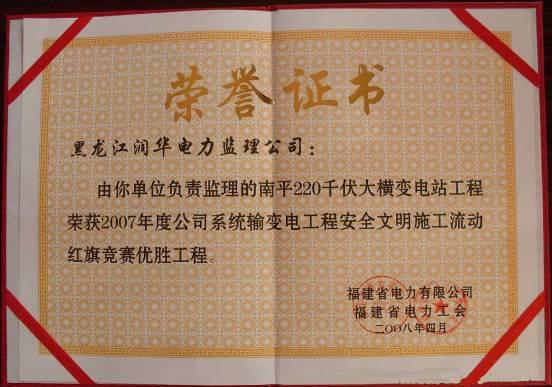 荣誉证书
黑龙江润华电力监理公司：
由你单位负责监理的南平220千伏大横变电站工程
荣获2007年度公司系统输变电工程安全文明施工流动
红旗竞赛优胜工程。
福建省电力有限公司
福建省电力工会
二〇〇八年四月